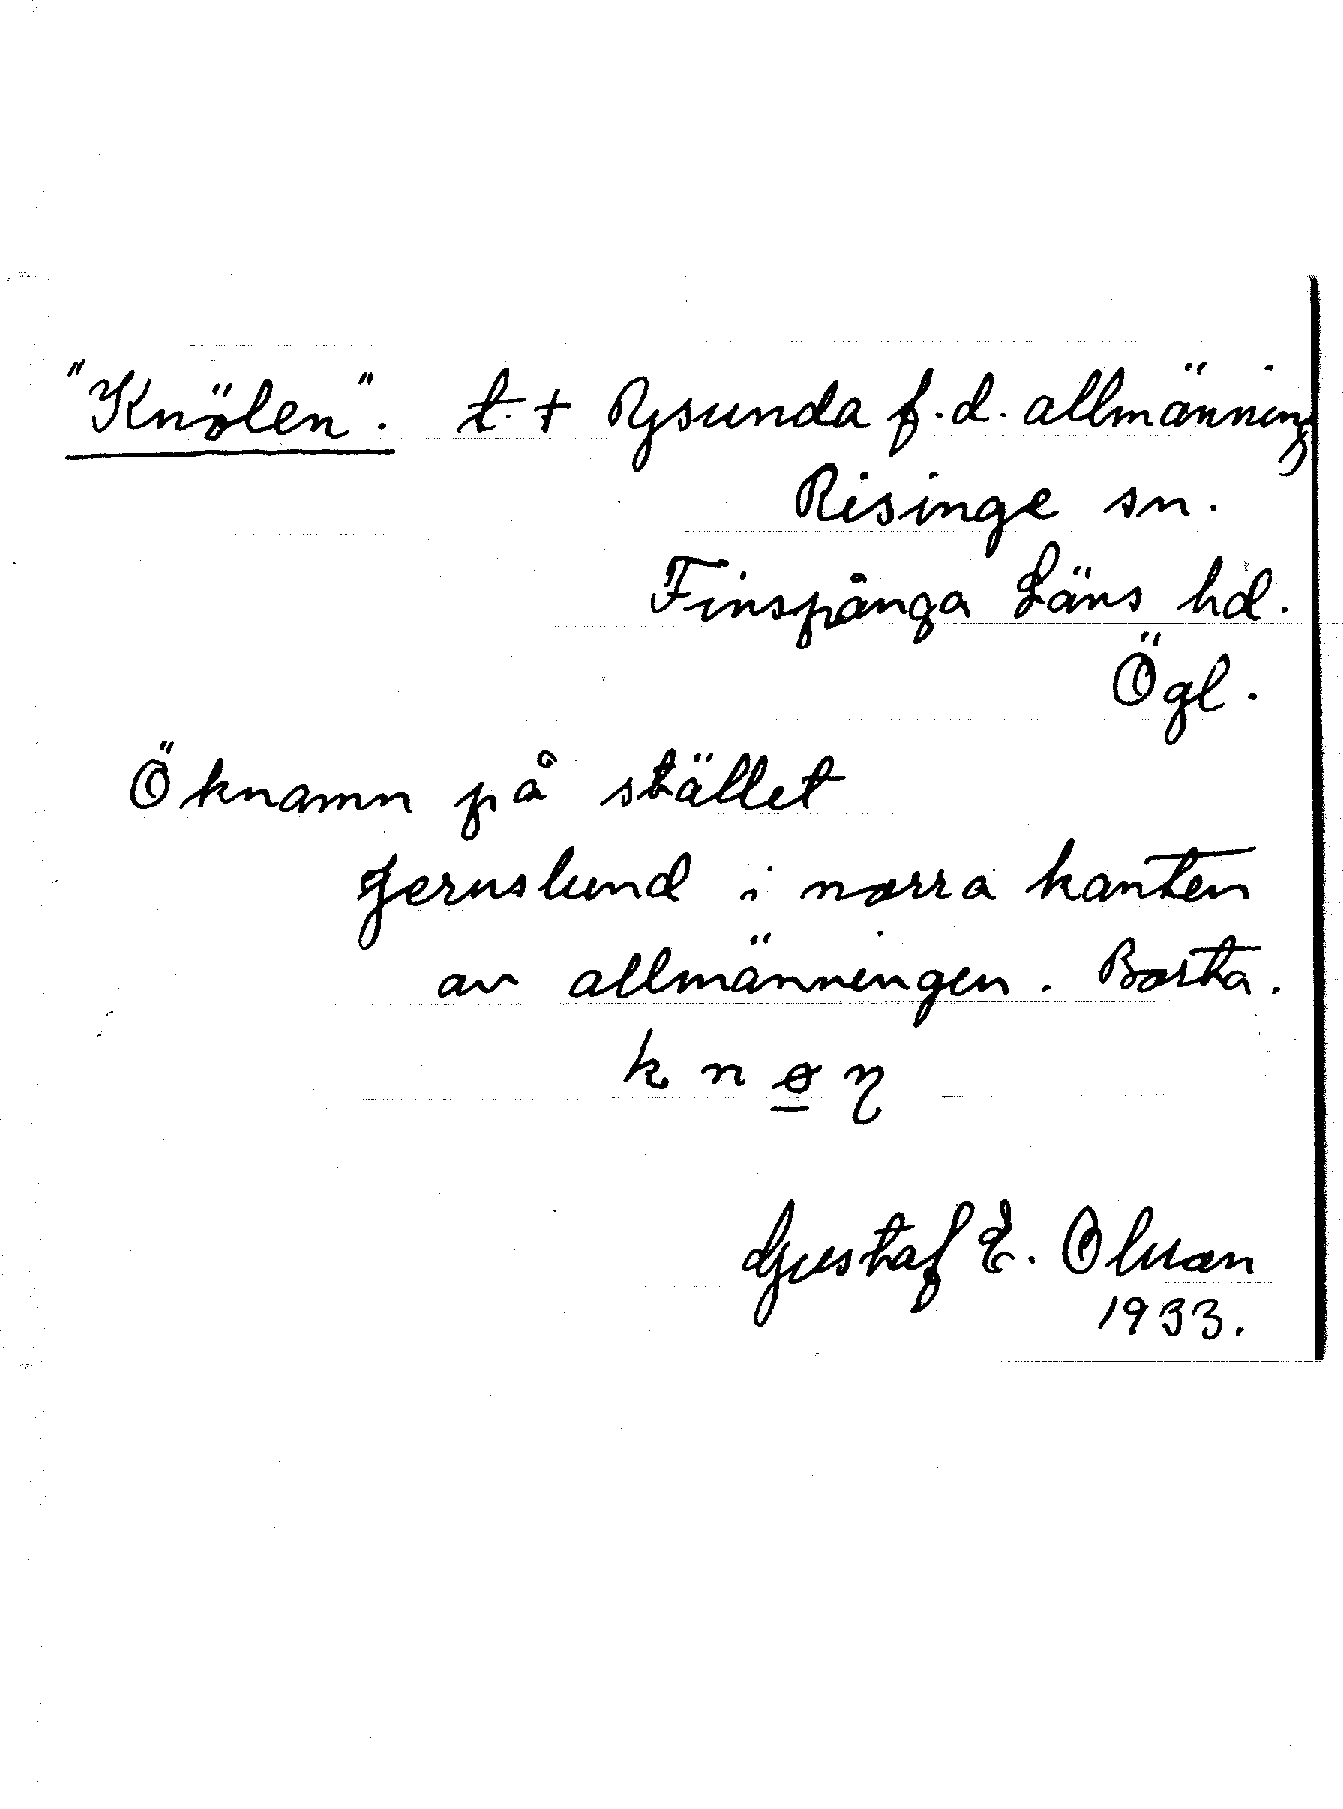 "Knölen". t. + Rysunda f.d. allmänning
Risinge sn.
Finspånga Läns hd.
Ögl.
Öknamn på stället
Jeruslund i norra kanten
av allmänningen. Borta.
k n ø̲ η
Gustaf E. Olsson
1933.